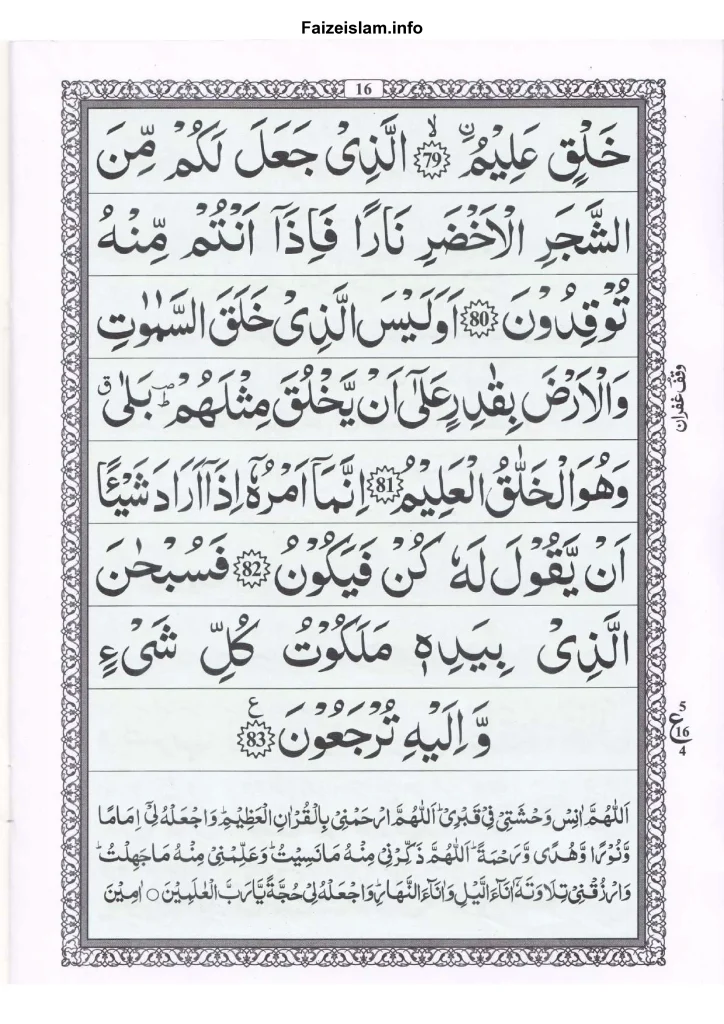 Faizeislam.info
16
خَلْقٍ عَلِيْمُ ۙ۬ۨ 79 الَّذِیْ جَعَلَ لَكُمْ مِّنَ
الشَّجَرِ الْاَخْضَرِ نَارًا فَاِذَاۤ اَنْتُمْ مِّنْهُ
تُوْقِدُوْنَ 80 اَوَلَيْسَ الَّذِیْ خَلَقَ السَّمٰوٰتِ
وَالْاَرْضَ بِقٰدِرٍ عَلٰۤی اَنْ يَّخْلُقَ مِثْلَهُمْ ؕ بَلٰی ۗ
وقف غفران
وَهُوَ الْخَلّٰقُ الْعَلِيْمُ 81 اِنَّمَاۤ اَمْرُهٗۤ اِذَاۤ اَرَادَ شَيْـًٔا
اَنْ يَّقُوْلَ لَهٗ كُنْ فَيَكُوْنُ 82 فَسُبْحٰنَ
الَّذِیْ بِيَدِهٖ مَلَكُوْتُ كُلِّ شَیْءٍ
وَّ اِلَيْهِ تُرْجَعُوْنَ 83 ع
5
ع 16
4
اَللّٰهُمَّ اٰنِسْ وَحْشَتِیْ فِیْ قَبْرِیْ ؕ اَللّٰهُمَّ ارْحَمْنِیْ بِالْقُرْاٰنِ الْعَظِيْمِ ؕ وَاجْعَلْهُ لِیْۤ اِمَامًا
وَّنُوْرًا وَّهُدًی وَّرَحْمَةً ؕ اَللّٰهُمَّ ذَكِّرْنِیْ مِنْهُ مَا نَسِيْتُ ؕ وَعَلِّمْنِیْ مِنْهُ مَا جَهِلْتُ ؕ
وَارْزُقْنِیْ تِلَاوَتَهٗۤ اٰنَآءَ الَّيْلِ وَاٰنَآءَ النَّهَارِ ؕ وَاجْعَلْهُ لِیْ حُجَّةً يَّارَبَّ الْعٰلَمِيْنَ ○ اٰمِيْنَ